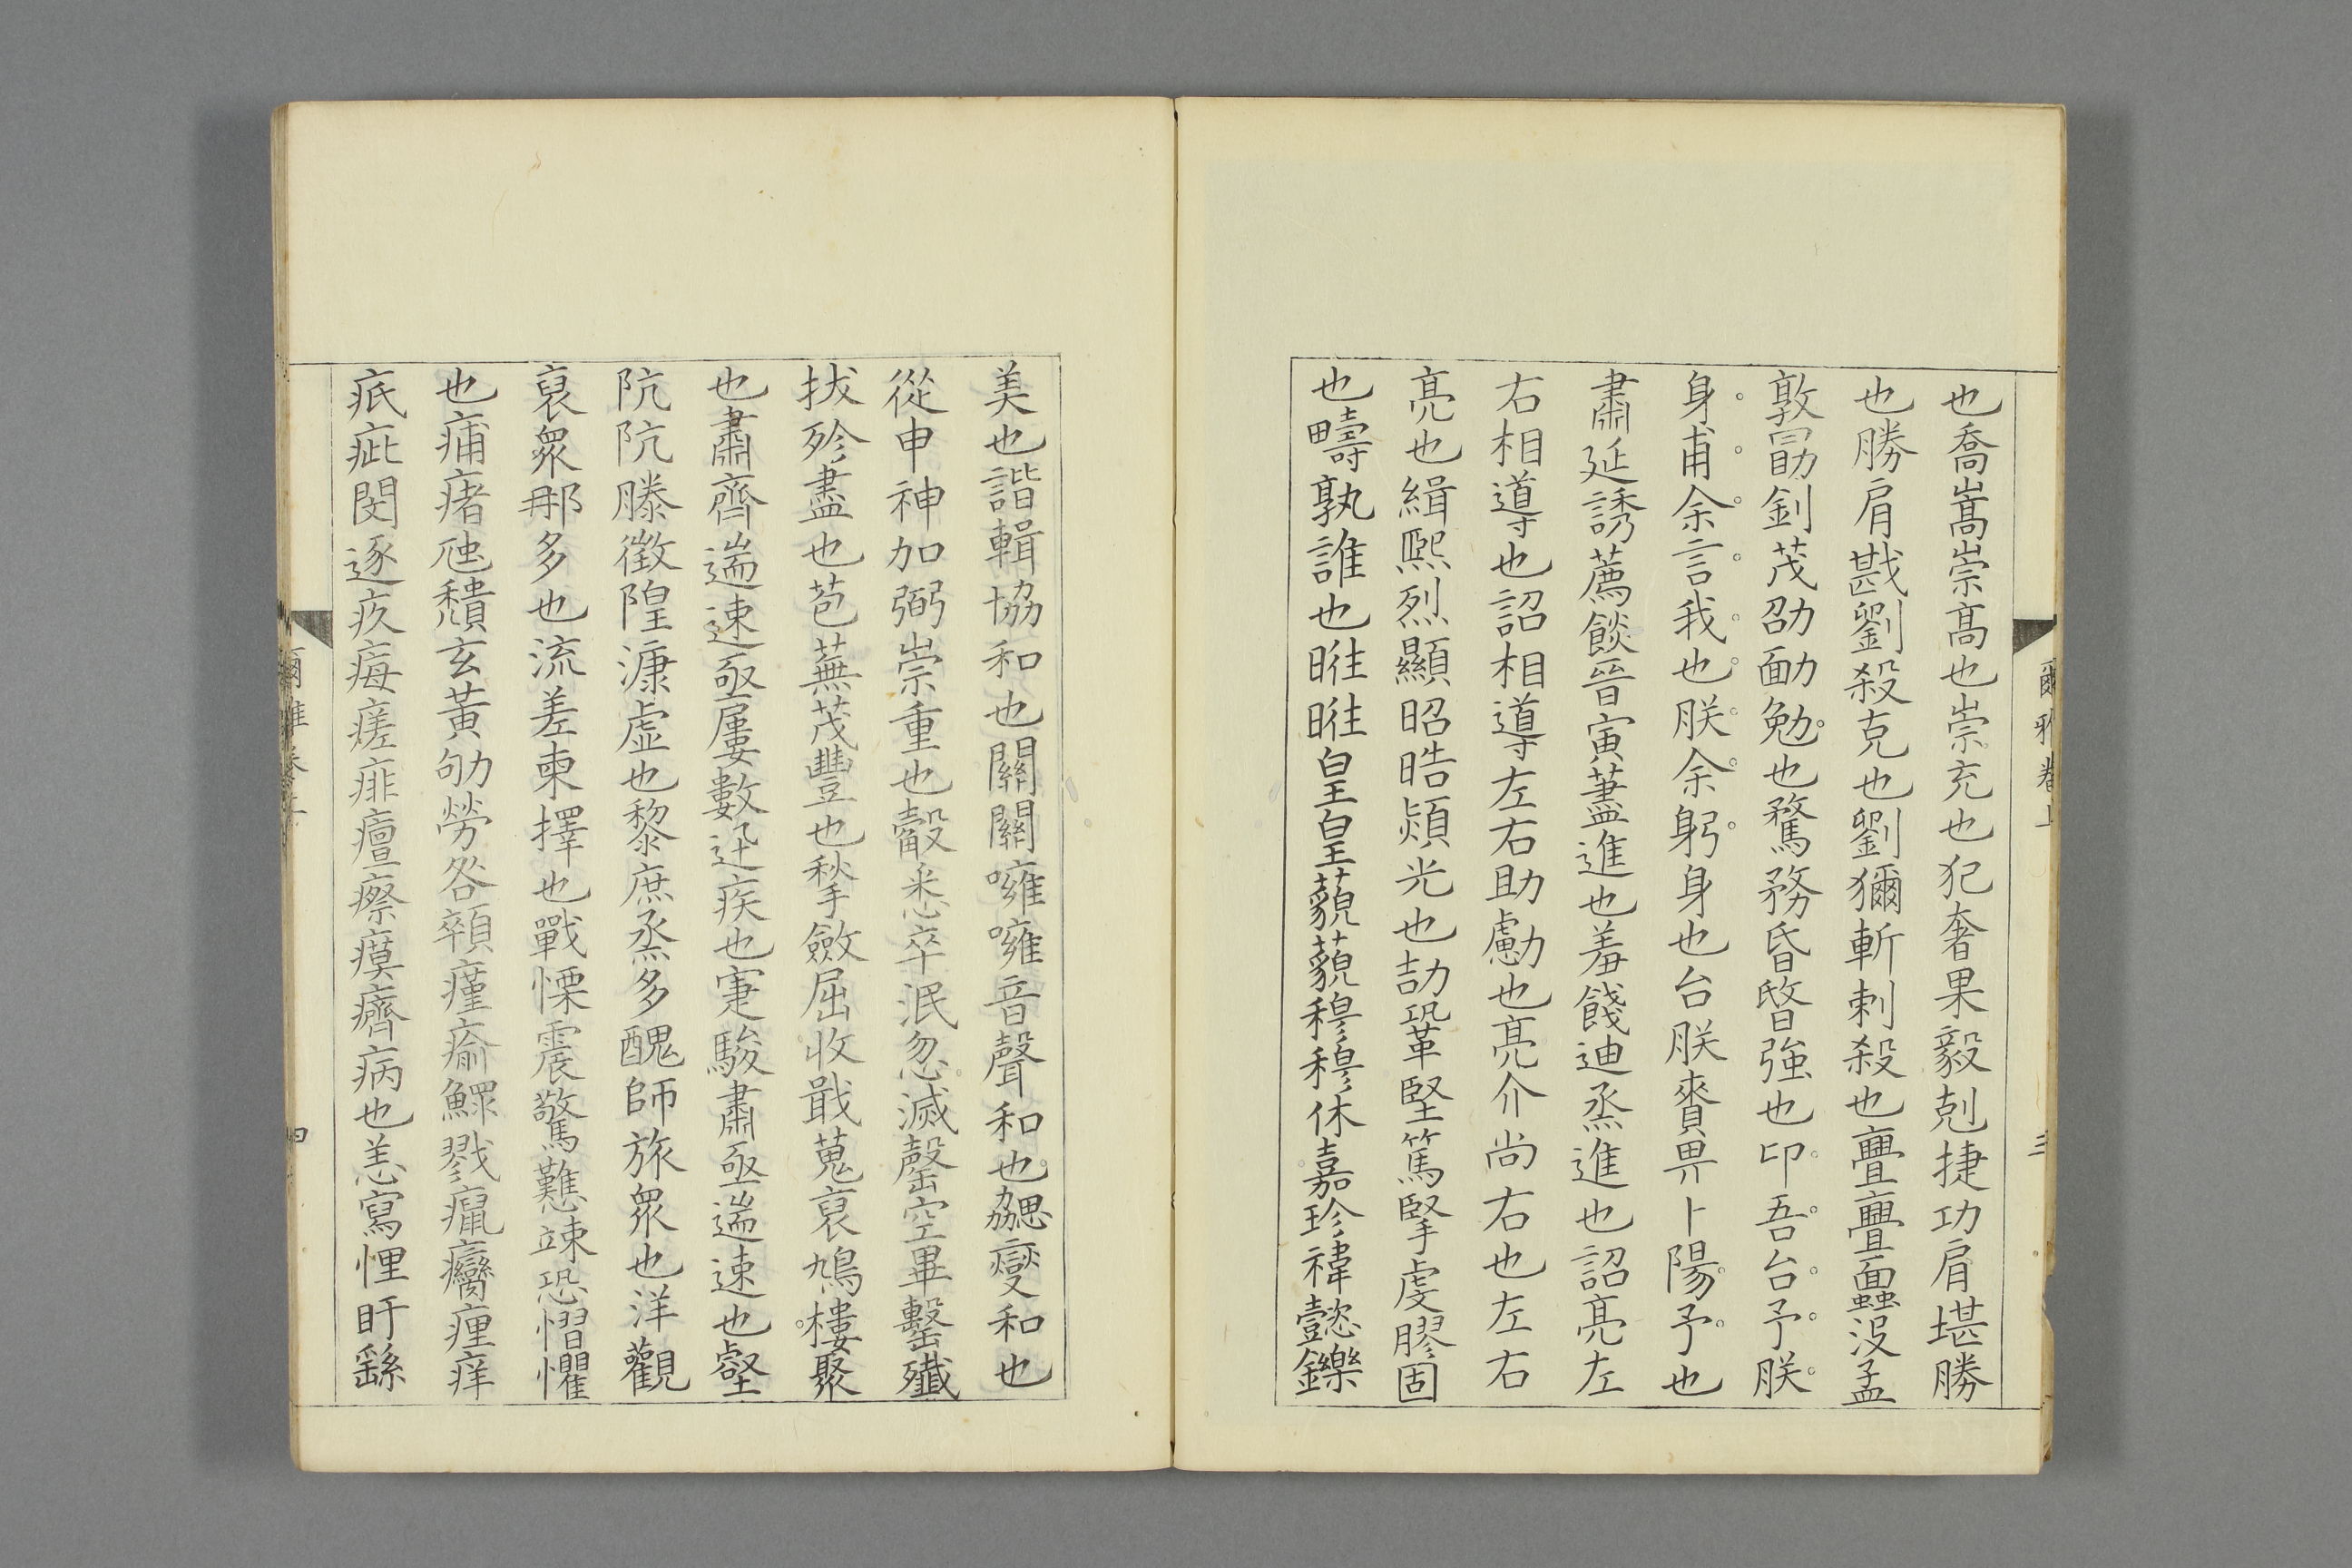 爾雅卷上
三
也喬嵩崇高也崇充也犯奢果毅剋捷功肩堪勝
也勝肩戡劉殺克也劉獮斬刺殺也亹亹蠠沒孟
敦勖釗茂劭勔勉也騖務昏暋強也卬吾台予朕
身甫余言我也朕余躬身也台朕賚畀卜陽予也
肅延誘薦餤晉寅藎進也羞餞迪烝進也詔亮左
右相導也詔相導左右助勴也亮介尚右也左右
亮也緝熙烈顯昭晧熲光也劼鞏堅篤掔虔膠固
也疇孰誰也暀暀皇皇藐藐穆穆休嘉珍禕懿鑠
美也諧輯協和也關關噰噰音聲和也勰燮和也
從申神加弼崇重也觳悉卒泯忽滅罄空畢罊殲
拔殄盡也苞蕪茂豐也揫斂屈收戢蒐裒鳩樓聚
也肅齊遄速亟屢數迅疾也寁駿肅亟遄速也壑
阬阬滕徵隍漮虛也黎庶烝多醜師旅眾也洋觀
裒眾那多也流差柬擇也戰慄震驚戁竦恐慴懼
也痡瘏虺頹玄黃劬勞咎顇瘽瘉鰥戮癙癵瘦痒
疧疵閔逐疚痗瘥痱癉瘵瘼癠病也恙寫悝盱繇
四